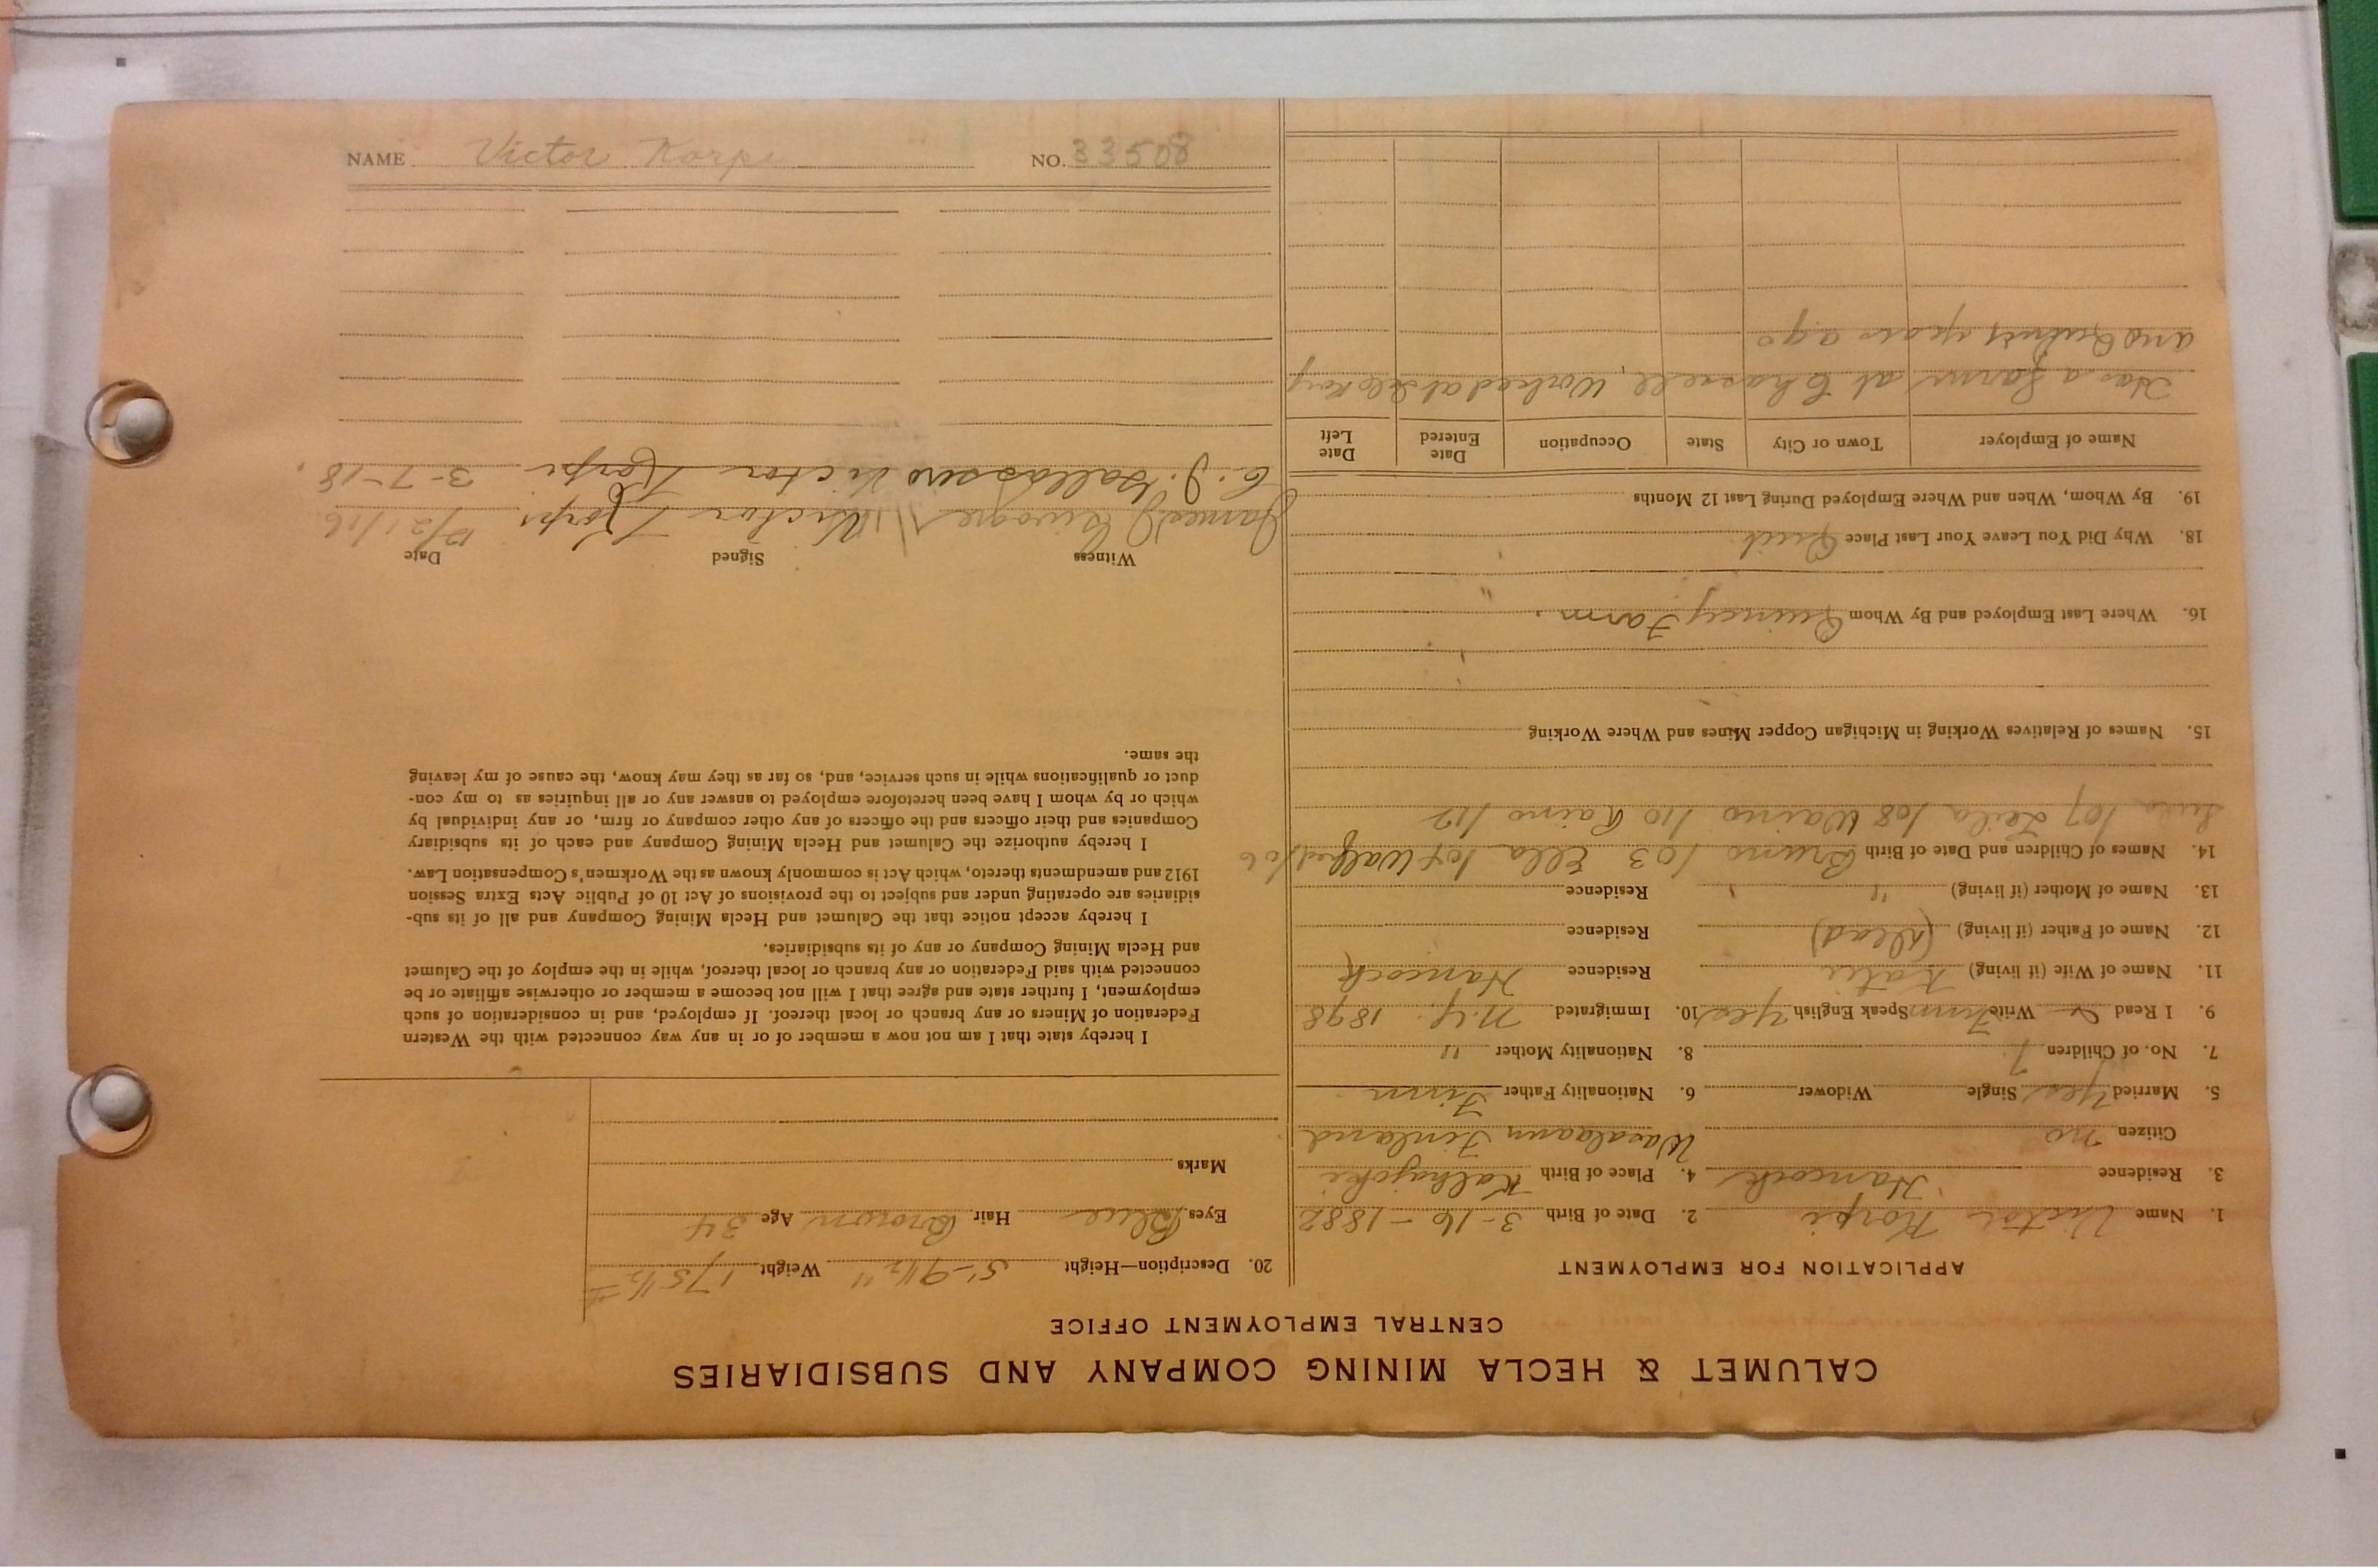 CALUMET & HECLA MINING COMPANY AND SUBSIDIARIES
CENTRAL EMPLOYMENT OFFICE
APPLICATION FOR EMPLOYMENT
1. Name Victor Korpi 2. Date of Birth 3-16-1882
3. Residence Hancock 4. Place of Birth Kalajoki
Citizen no Finland
5. Married Yes Single Widower 6. Nationality Father Finn
7. No. of Children 7 8. Nationality Mother "
9. I Read Write Finn Speak English Yes 10. Immigrated N.Y. 1898
11. Name of Wife (if living) Residence Hancock
12. Name of Father (if living) (Dead) Residence
13. Name of Mother (if living) " Residence
14. Names of Children and Date of Birth Bruno 103 Ella 104 Walfred 106
107 Leila 108 Waino 110 Raino 112
15. Names of Relatives Working in Michigan Copper Mines and Where Working
16. Where Last Employed and By Whom Quincy Farm.
"
18. Why Did You Leave Your Last Place Quit
19. By Whom, When and Where Employed During Last 12 Months
Name of Employer Town or City State Occupation Date Entered Date Left
Has a farm at Chassell, Worked at
and years ago
20. Description—Height 5'-9½" Weight 175½
Eyes Blue Hair Brown Age 34
Marks
I hereby state that I am not now a member of or in any way connected with the Western
Federation of Miners or any branch or local thereof. If employed, and in consideration of such
employment, I further state and agree that I will not become a member or otherwise affiliate or be
connected with said Federation or any branch or local thereof, while in the employ of the Calumet
and Hecla Mining Company or any of its subsidiaries.
I hereby accept notice that the Calumet and Hecla Mining Company and all of its sub-
sidiaries are operating under and subject to the provisions of Act 10 of Public Acts Extra Session
1912 and amendments thereto, which Act is commonly known as the Workmen's Compensation Law.
I hereby authorize the Calumet and Hecla Mining Company and each of its subsidiary
Companies and their officers and the officers of any other company or firm, or any individual by
which or by whom I have been heretofore employed to answer any or all inquiries as to my con-
duct or qualifications while in such service, and, so far as they may know, the cause of my leaving
the same.
Witness Signed Date
James Victor Korpi 12/21/16
C. J. Victor Korpi 3-7-18
NAME Victor Korpi NO. 33508